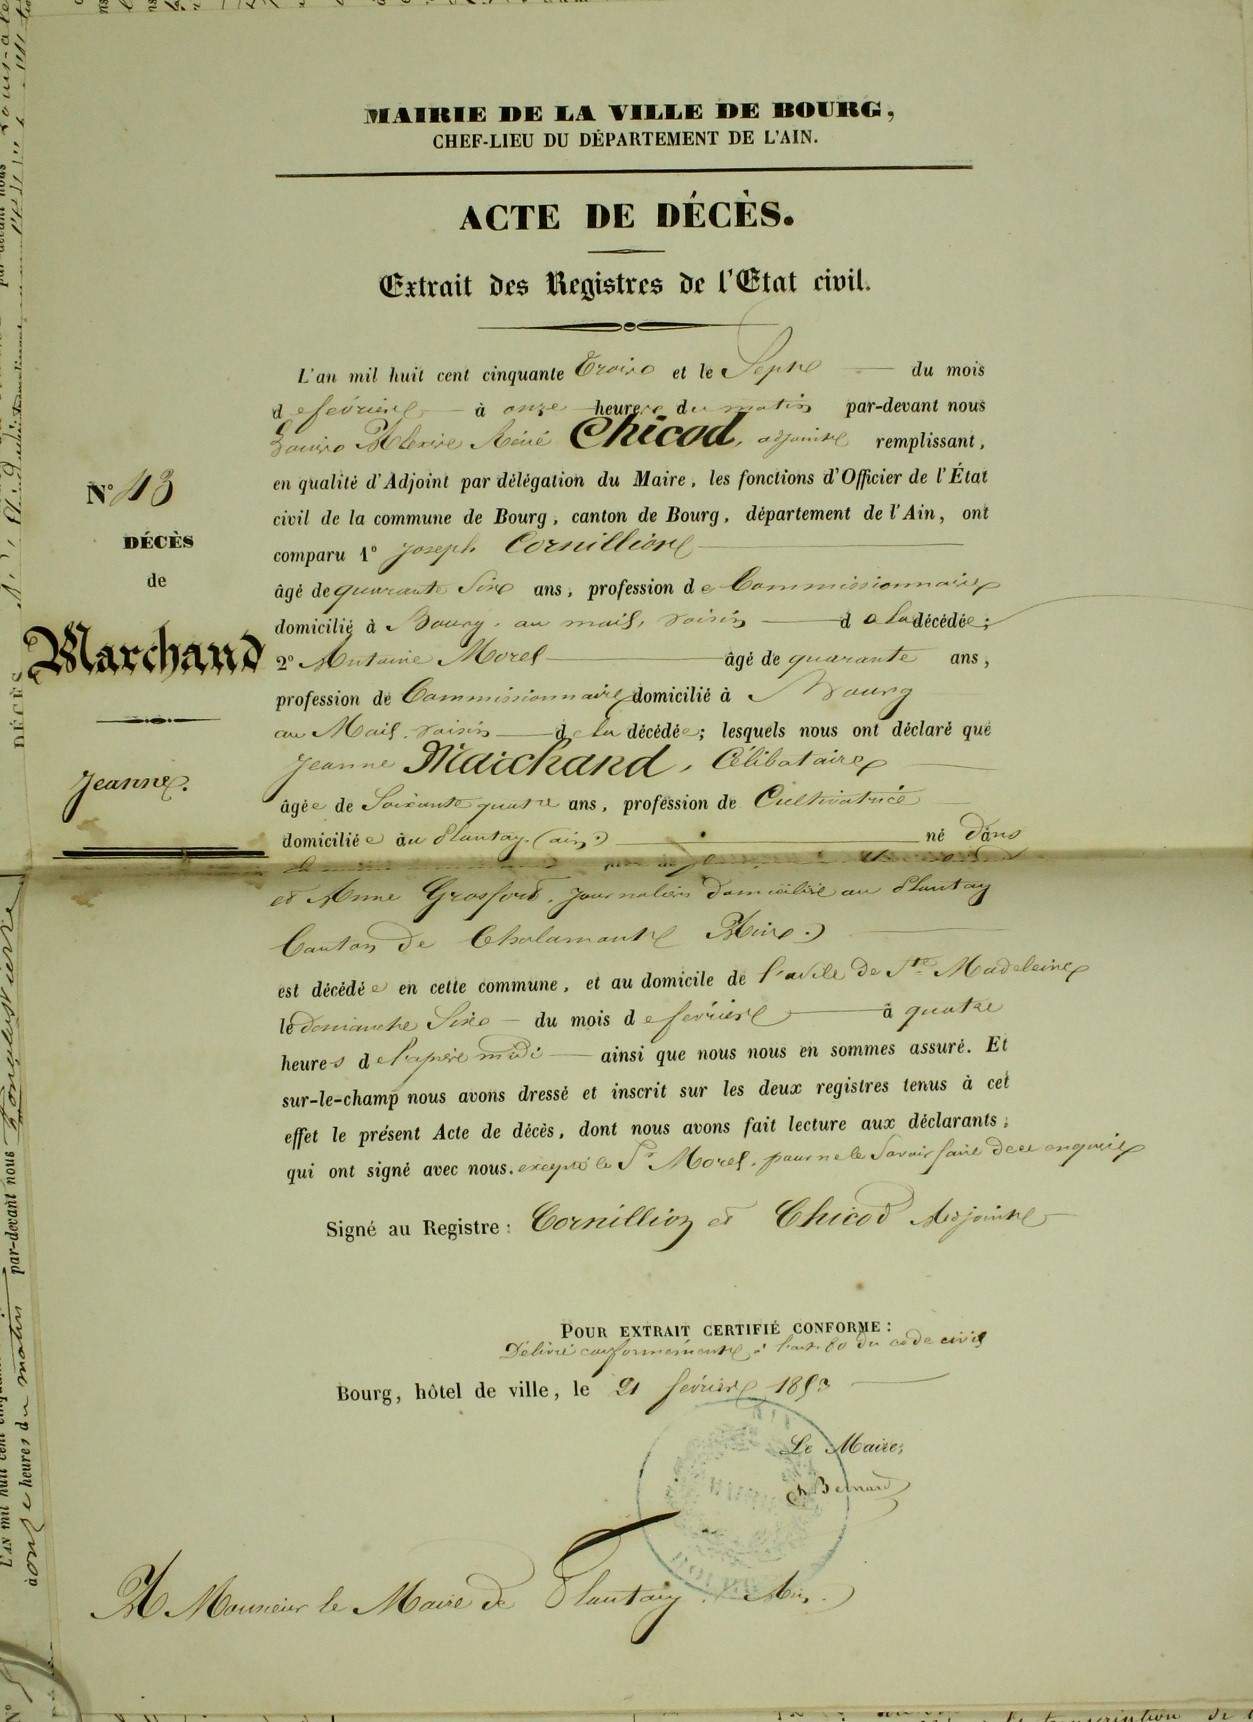 MAIRIE DE LA VILLE DE BOURG,
CHEF-LIEU DU DÉPARTEMENT DE L'AIN.
ACTE DE DÉCÈS.
Extrait des Registres de l'Etat civil.
L'an mil huit cent cinquante Trois et le Sept du mois
de février à onze heures du matin par-devant nous
Louis Alexis Réné Chicod, adjoint remplissant,
en qualité d'Adjoint par délégation du Maire, les fonctions d'Officier de l'État
civil de la commune de Bourg, canton de Bourg, département de l'Ain, ont
comparu 1° Joseph Cornillion
âgé de quarante Six ans, profession de Commissionnaire
domicilié à Bourg, au mail, voisin de la décédée;
2° Antoine Morel âgé de quarante ans,
profession de Commissionnaire domicilié à Bourg
au Mail, voisin de la décédée; lesquels nous ont déclaré que
Jeanne Marchand, Célibataire
âgée de Soixante quatre ans, profession de Cultivatrice
domiciliée au Plantay (ain.) né dans
et Anne Grosfort, journaliers domicilié au Plantay
Canton de Chalamont Ain.)
est décédée en cette commune, et au domicile de l'asile de Ste Madeleine
le dimanche Six du mois de février à quatre
heures de l'après midi ainsi que nous nous en sommes assuré. Et
sur-le-champ nous avons dressé et inscrit sur les deux registres tenus à cet
effet le présent Acte de décès, dont nous avons fait lecture aux déclarants,
qui ont signé avec nous. excepté le Sr Morel, pour ne le Savoir faire de ce enquis
Signé au Registre: Cornillion et Chicod Adjoint
N° 43
DÉCÈS
de
Marchand
Jeanne.
POUR EXTRAIT CERTIFIÉ CONFORME:
Délivré conformément à l'art. 80 du code civil
Bourg, hôtel de ville, le 21 février 1853
Le Maire,
Bernard
A Monsieur le Maire de Plantay. Ain.)